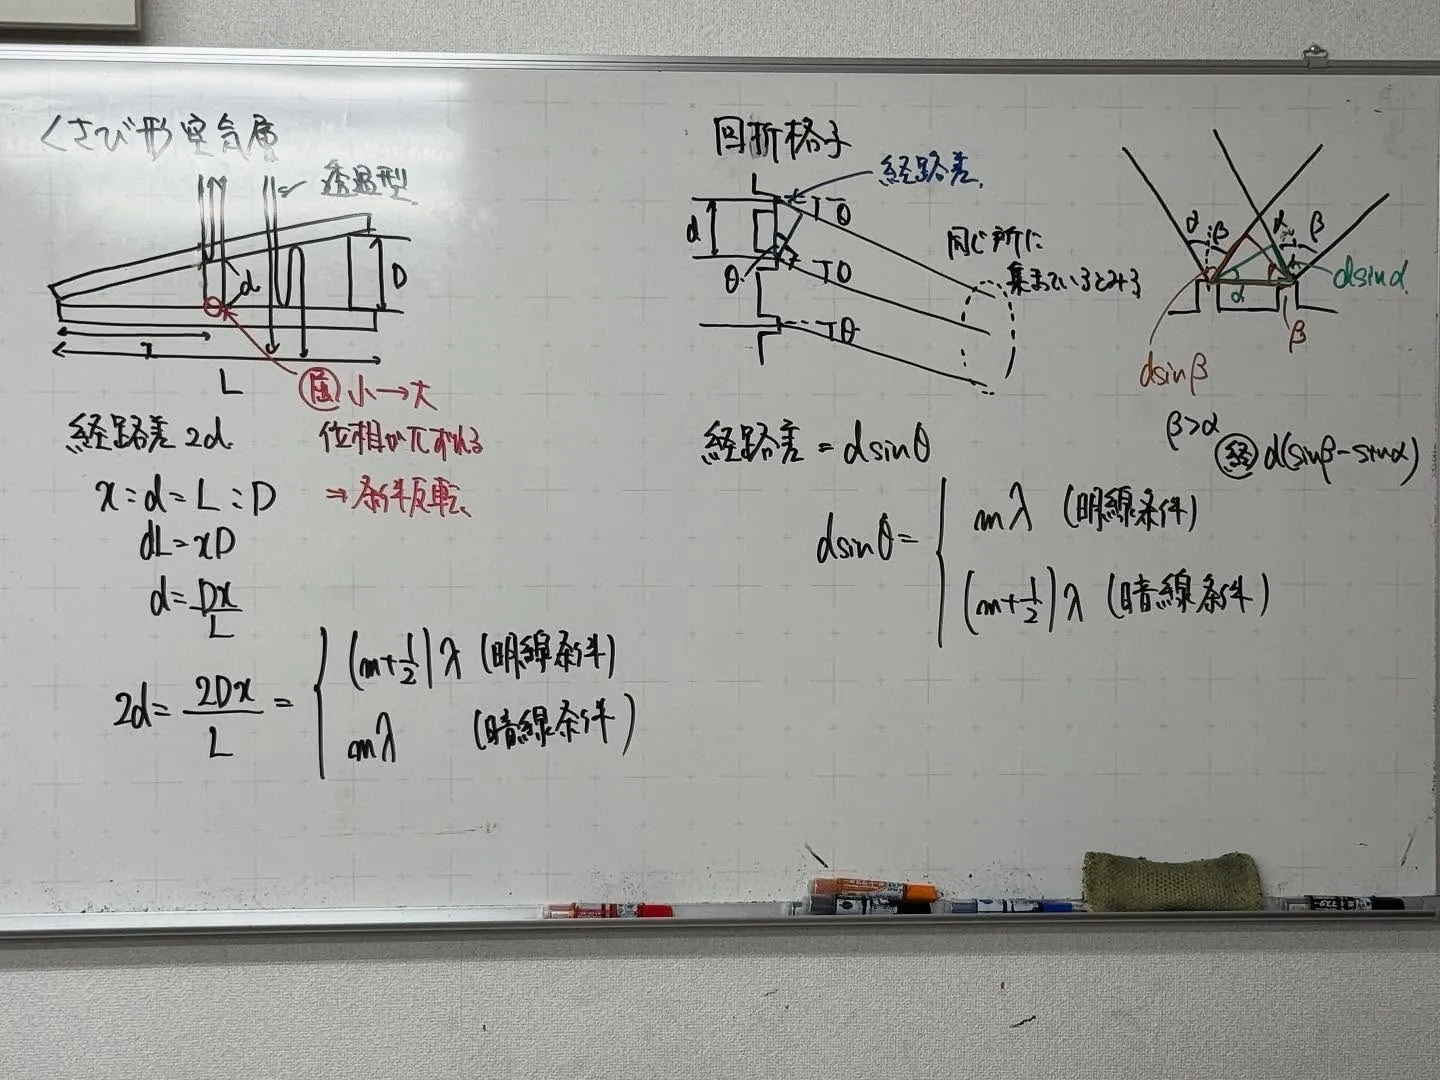 くさび形空気層
透過型
d
D
x
L
屈 小→大
位相がπずれる
⇒条件反転、
経路差 2d
x:d=L:D
dL=xD
d=Dx/L
2d=2Dx/L={(m+1/2)λ (明線条件)
mλ (暗線条件)
回折格子
経路差
d
θ
θ
θ
θ
同じ所に
集まっているとみる
経路差=dsinθ
dsinθ={mλ (明線条件)
(m+1/2)λ (暗線条件)
α
β
α
β
α
β
dsinα
dsinβ
β>α
経 d(sinβ-sinα)